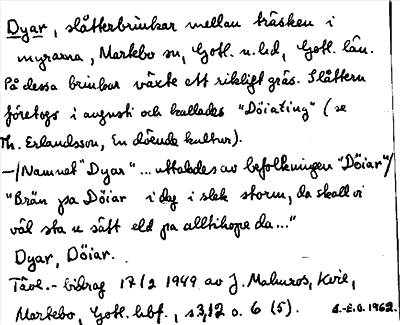 Dyar, slåtterbrinkar mellan träsken i
myrarna, Martebo sn, Gotl. n. hd, Gotl. län.
På dessa brinkar växte ett rikligt gräs. Slåttern
företogs i augusti och kallades "Döiating" (se
Th. Erlandsson, En döende kultur).
—/Namnet "Dyar" ... uttalades av befolkningen "Döiar"/
"Brän pa Döiar i dag i slek storm, da skall vi
väl sta u sätt eld pa alltihopa da..."
Dyar, Döiar.
Tävl.- bidrag 17/2 1949 av J. Malmros, Kvie,
Martebo, Gotl. hbf., s 3, 12 o. 6 (5). 1962.